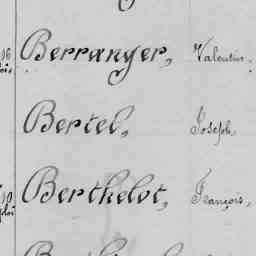 Berranger, Valentin,
Bertel, Joseph,
Berthelot, François,